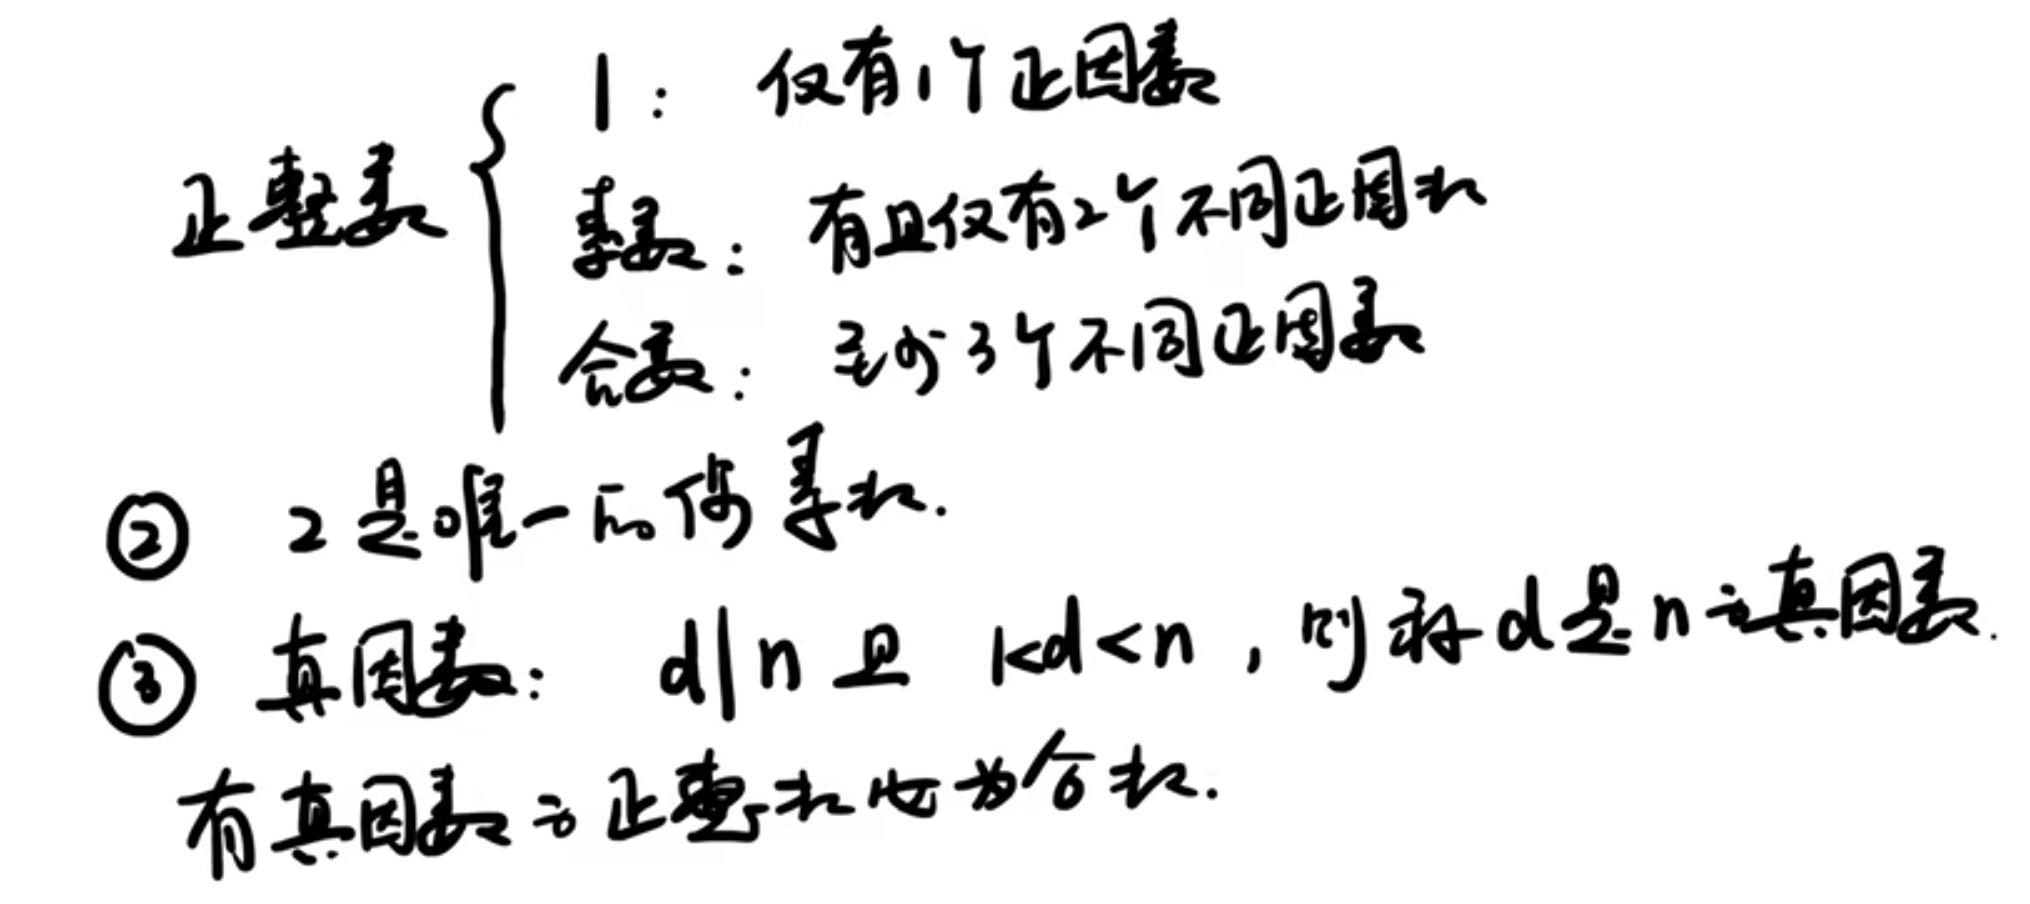 正整数 { 1: 仅有1个正因数
素数: 有且仅有2个不同正因数
合数: 至少3个不同正因数
② 2是唯一的偶素数.
③ 真因数: d|n 且 1<d<n, 则称d是n的真因数.
有真因数的正整数必为合数.